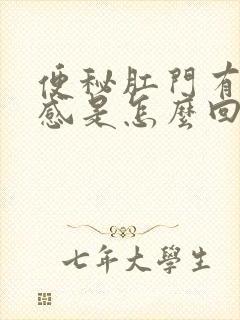 便秘肛門有
感是怎麼回
七年大學生